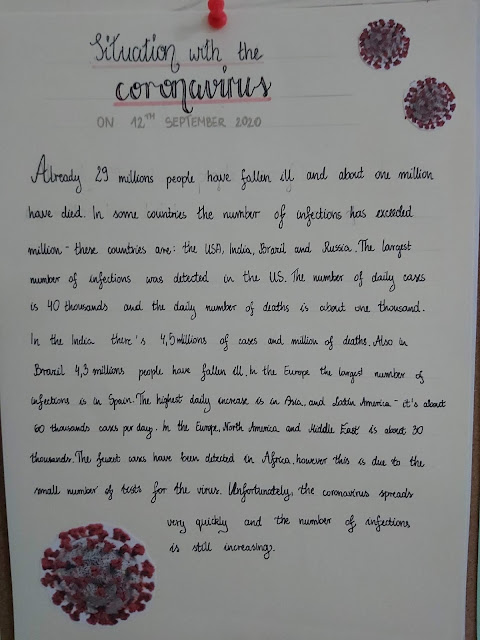 Situation with the
coronavirus
ON 12TH SEPTEMBER 2020
Already 29 millions people have fallen ill and about one million
have died. In some countries the number of infections has exceeded
million - these countries are: the USA, India, Brazil and Russia. The largest
number of infections was detected in the US. The number of daily cases
is 40 thousands and the daily number of deaths is about one thousand.
In the India there's 4,5 millions of cases and million of deaths. Also in
Brazil 4,3 millions people have fallen ill. In the Europe the largest number of
infections is in Spain. The highest daily increase is in Asia, and Latin America - it's about
60 thousands cases per day. In the Europe, North America and Middle East is about 30
thousands. The fewest cases have been detected in Africa, however this is due to the
small number of tests for the virus. Unfortunately, the coronavirus spreads
very quickly and the number of infections
is still increasing.